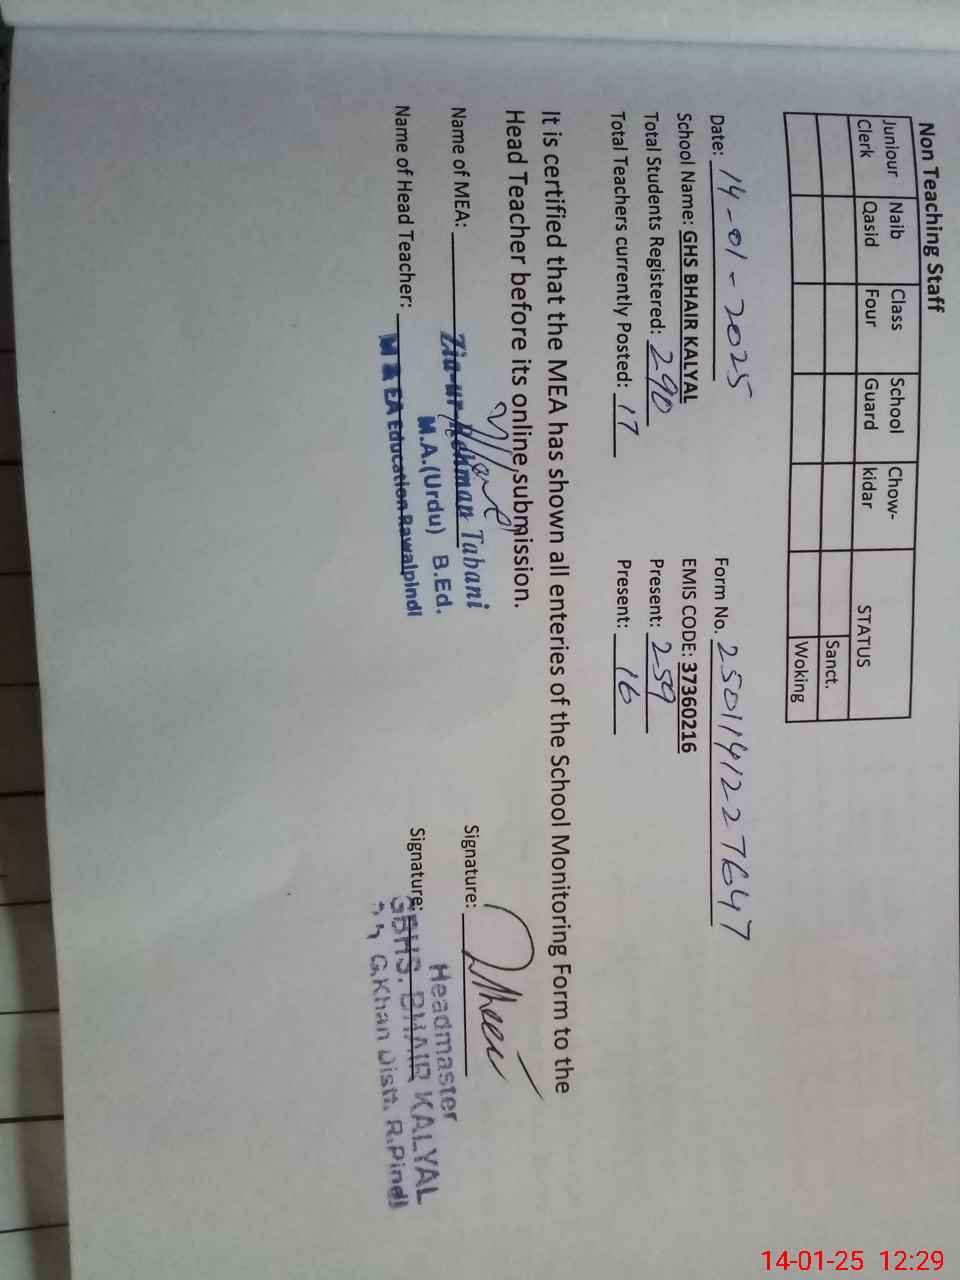 Non Teaching Staff
Juniour Clerk Naib Qasid Class Four School Guard Chow-kidar STATUS
Sanct.
Woking
Date: 14-01-2025 Form No. 2501141227647
School Name: GHS BHAIR KALYAL EMIS CODE: 37360216
Total Students Registered: 290 Present: 259
Total Teachers currently Posted: 17 Present: 16
It is certified that the MEA has shown all enteries of the School Monitoring Form to the
Head Teacher before its online,submission.
Name of MEA: Zia-ur Rehman Tabani Signature:
M.A.(Urdu) B.Ed.
M & EA Education Rawalpindi
Name of Head Teacher: Signature:
Headmaster
GBHS. BHAIR KALYAL
G.Khan Distt. R.Pindi
14-01-25 12:29